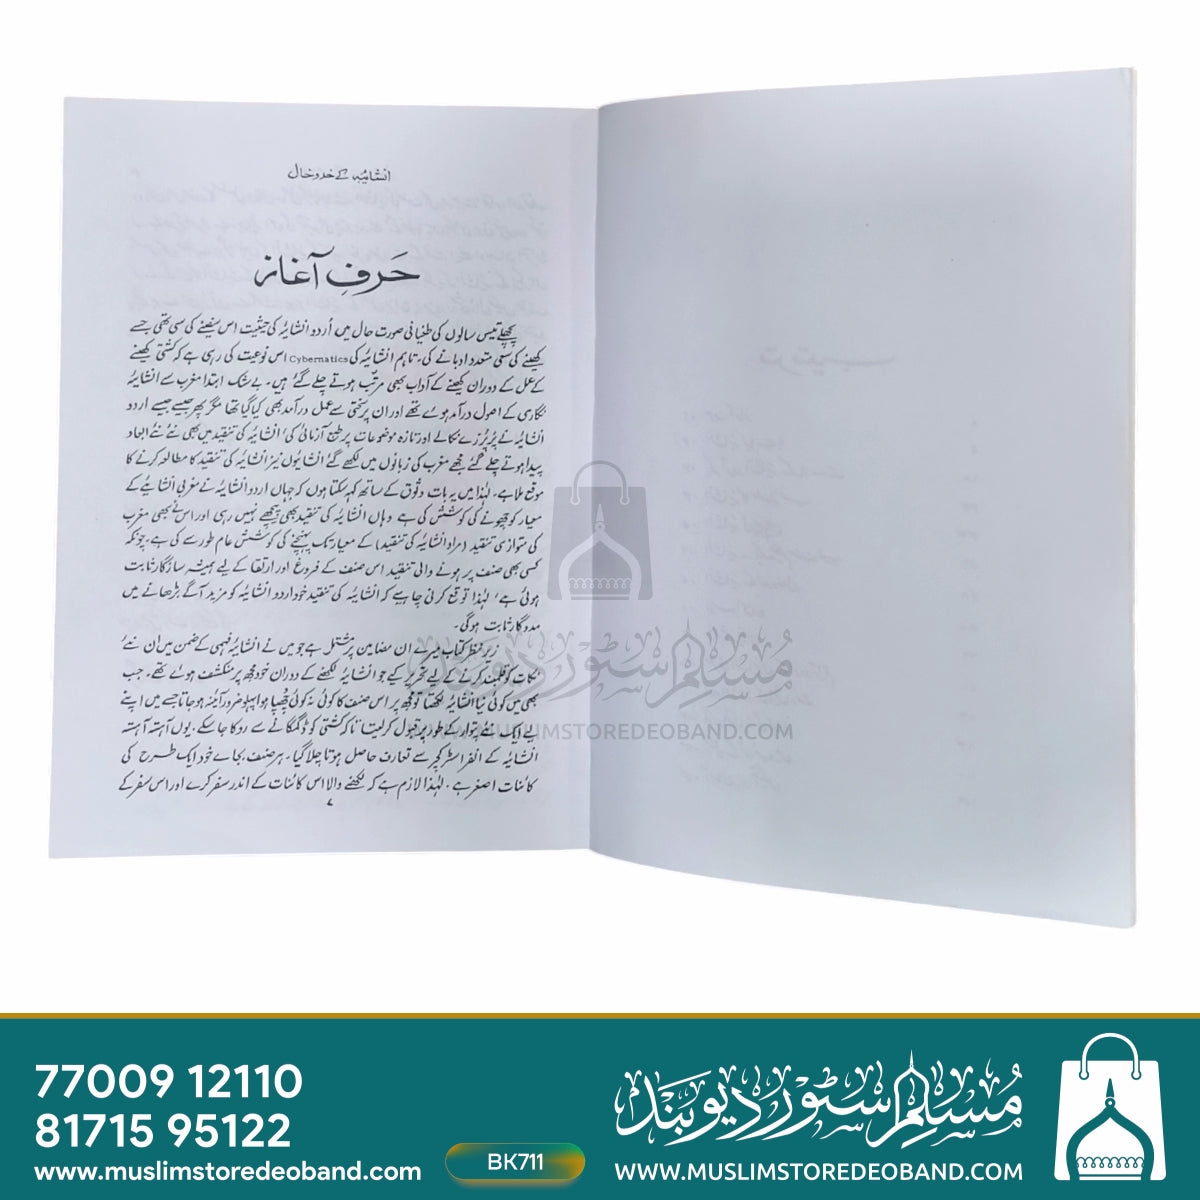 انشائیہ کے خدوخال
حَرفِ آغاز
پچھلے تیس سالوں کی طغیانی صورت حال میں اُردو انشائیہ کی حیثیت اس سفینے کی سی تھی جسے
کھینے کی سعی متعدد ادبا نے کی، تاہم انشائیہ کی Cybernatics اس نوعیت کی رہی ہے کہ کشتی کھینے
کے عمل کے دوران کھینے کے آداب بھی مرتب ہوتے چلے گئے ہیں۔ بے شک ابتدا مغرب سے انشائیہ
نگاری کے اصول درآمد ہوئے تھے اور ان پر سختی سے عمل درآمد بھی کیا گیا تھا مگر پھر جیسے جیسے اردو
انشائیہ نے پر پُرزے نکالے اور تازہ موضوعات پر طبع آزمائی کی، انشائیہ کی تنقید میں بھی نئے نئے ابعاد
پیدا ہوتے چلے گئے مجھے مغرب کی زبانوں میں لکھے گئے انشائیوں نیز انشائیہ کی تنقید کا مطالعہ کرنے کا
موقع ملا ہے۔ لہٰذا میں یہ بات وثوق کے ساتھ کہہ سکتا ہوں کہ جہاں اردو انشائیہ نے مغربی انشائیے کے
معیار کو چھونے کی کوشش کی ہے وہاں انشائیہ کی تنقید بھی پیچھے نہیں رہی اور اس نے بھی مغرب
کی متوازی تنقید (مراد انشائیہ کی تنقید) کے معیار تک پہنچنے کی کوشش عام طور سے کی ہے۔ چونکہ
کسی بھی صنف پر ہونے والی تنقید اس صنف کے فروغ اور ارتقا کے لیے ہمیشہ سازگار ثابت
ہوئی ہے، لہٰذا توقع کرنی چاہیے کہ انشائیہ کی تنقید خود اردو انشائیہ کو مزید آگے بڑھانے میں
مددگار ثابت ہوگی۔
زیر نظر کتاب میرے ان مضامین پر مشتمل ہے جو میں نے انشائیہ فہمی کے ضمن میں ان نئے
نکات کو قلمبند کرنے کے لیے تحریر کیے جو انشائیہ لکھنے کے دوران خود مجھ پر منکشف ہوئے تھے۔ جب
بھی میں کوئی نیا انشائیہ لکھتا تو مجھ پر اس صنف کا کوئی نہ کوئی چھپا ہوا پہلو ضرور آئینہ ہو جاتا جسے میں اپنے
لیے ایک نئے پتوار کے طور پر قبول کر لیتا تاکہ کشتی کو ڈگمگانے سے روکا جا سکے۔ یوں آہستہ آہستہ
انشائیہ کے انفراسٹرکچر سے تعارف حاصل ہوتا چلا گیا۔ ہر صنف بجائے خود ایک طرح کی
کائنات اصغر ہے۔ لہٰذا لازم ہے کہ لکھنے والا اس کائنات کے اندر سفر کرے اور اس سفر کے
۷
ترتیب
مسلم سٹور دیوبند
WWW.MUSLIMSTOREDEOBAND.COM
77009 12110
81715 95122
www.muslimstoredeoband.com
BK711
مسلم سٹور دیوبند
WWW.MUSLIMSTOREDEOBAND.COM